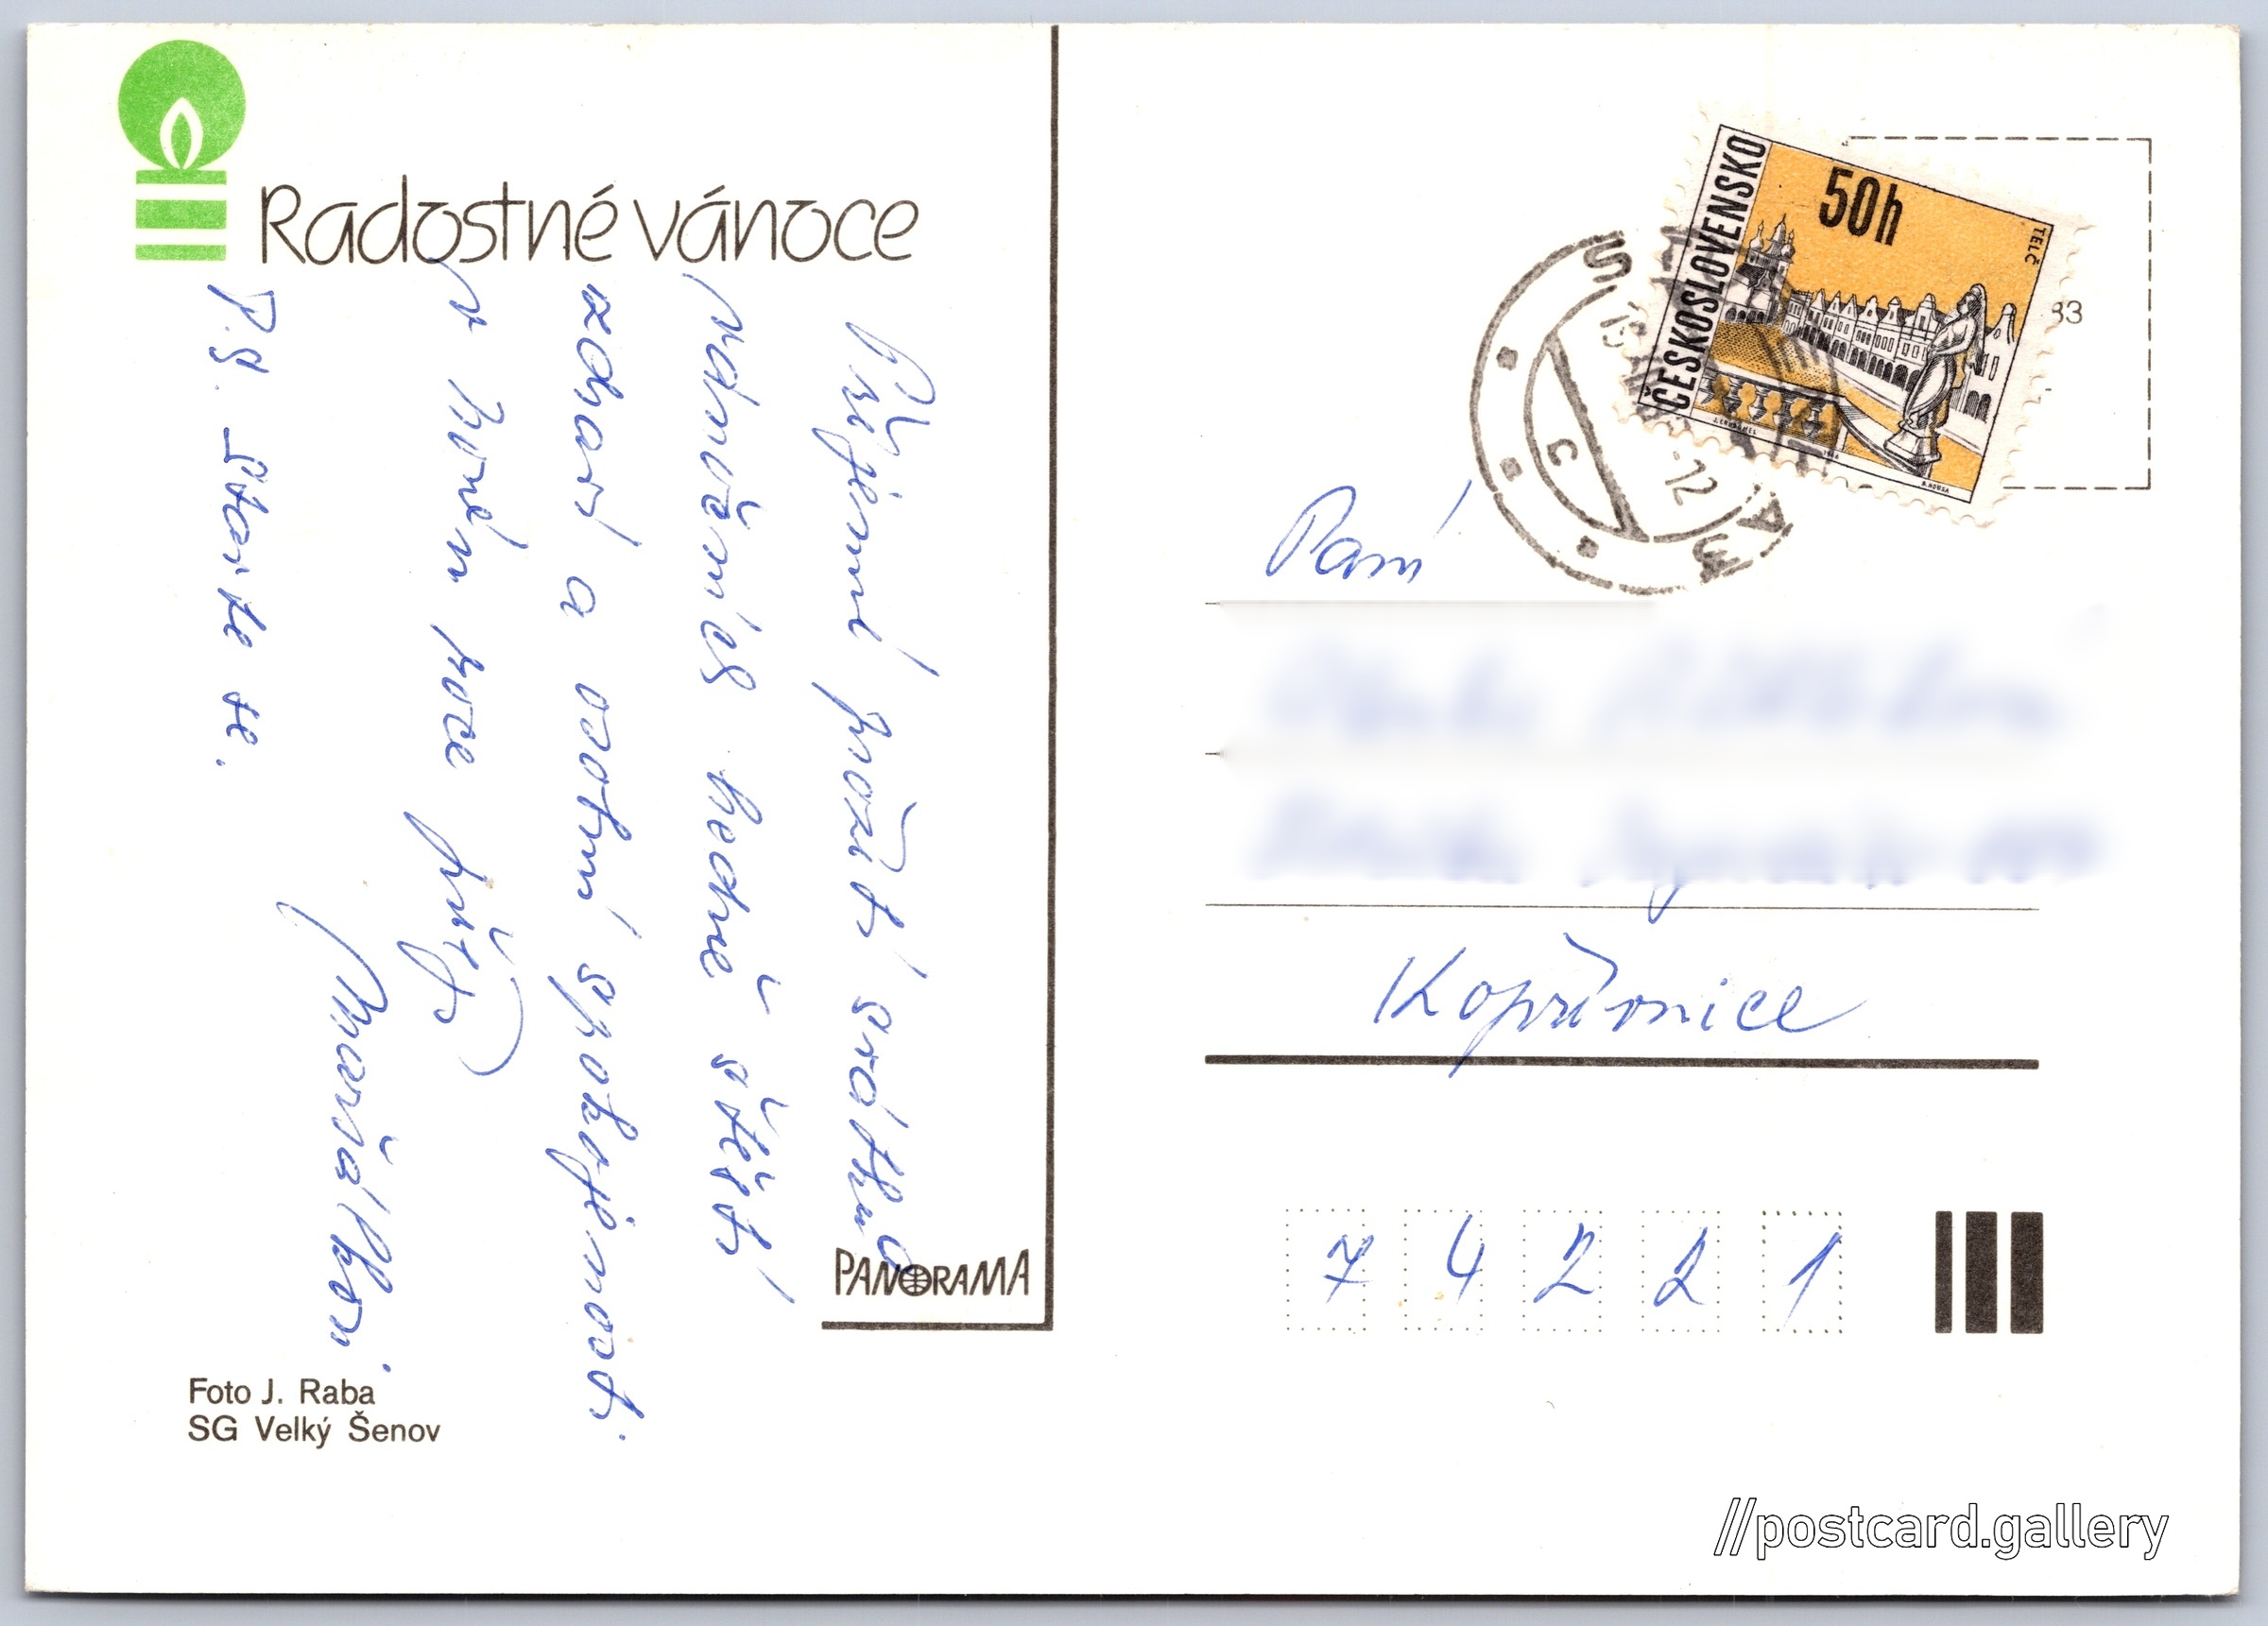 Radostné vánoce
Příjemné prožití svátků
vánočních hodně štěstí
zdraví a osobní spokojenosti
v novém roce přeje
P.S. Stavte se.
PANORAMA
Foto J. Raba
SG Velký Šenov
ČESKOSLOVENSKO
50h
TELČ
33
12
C
A
3
Paní
Kopřivnice
74221
//postcard.gallery